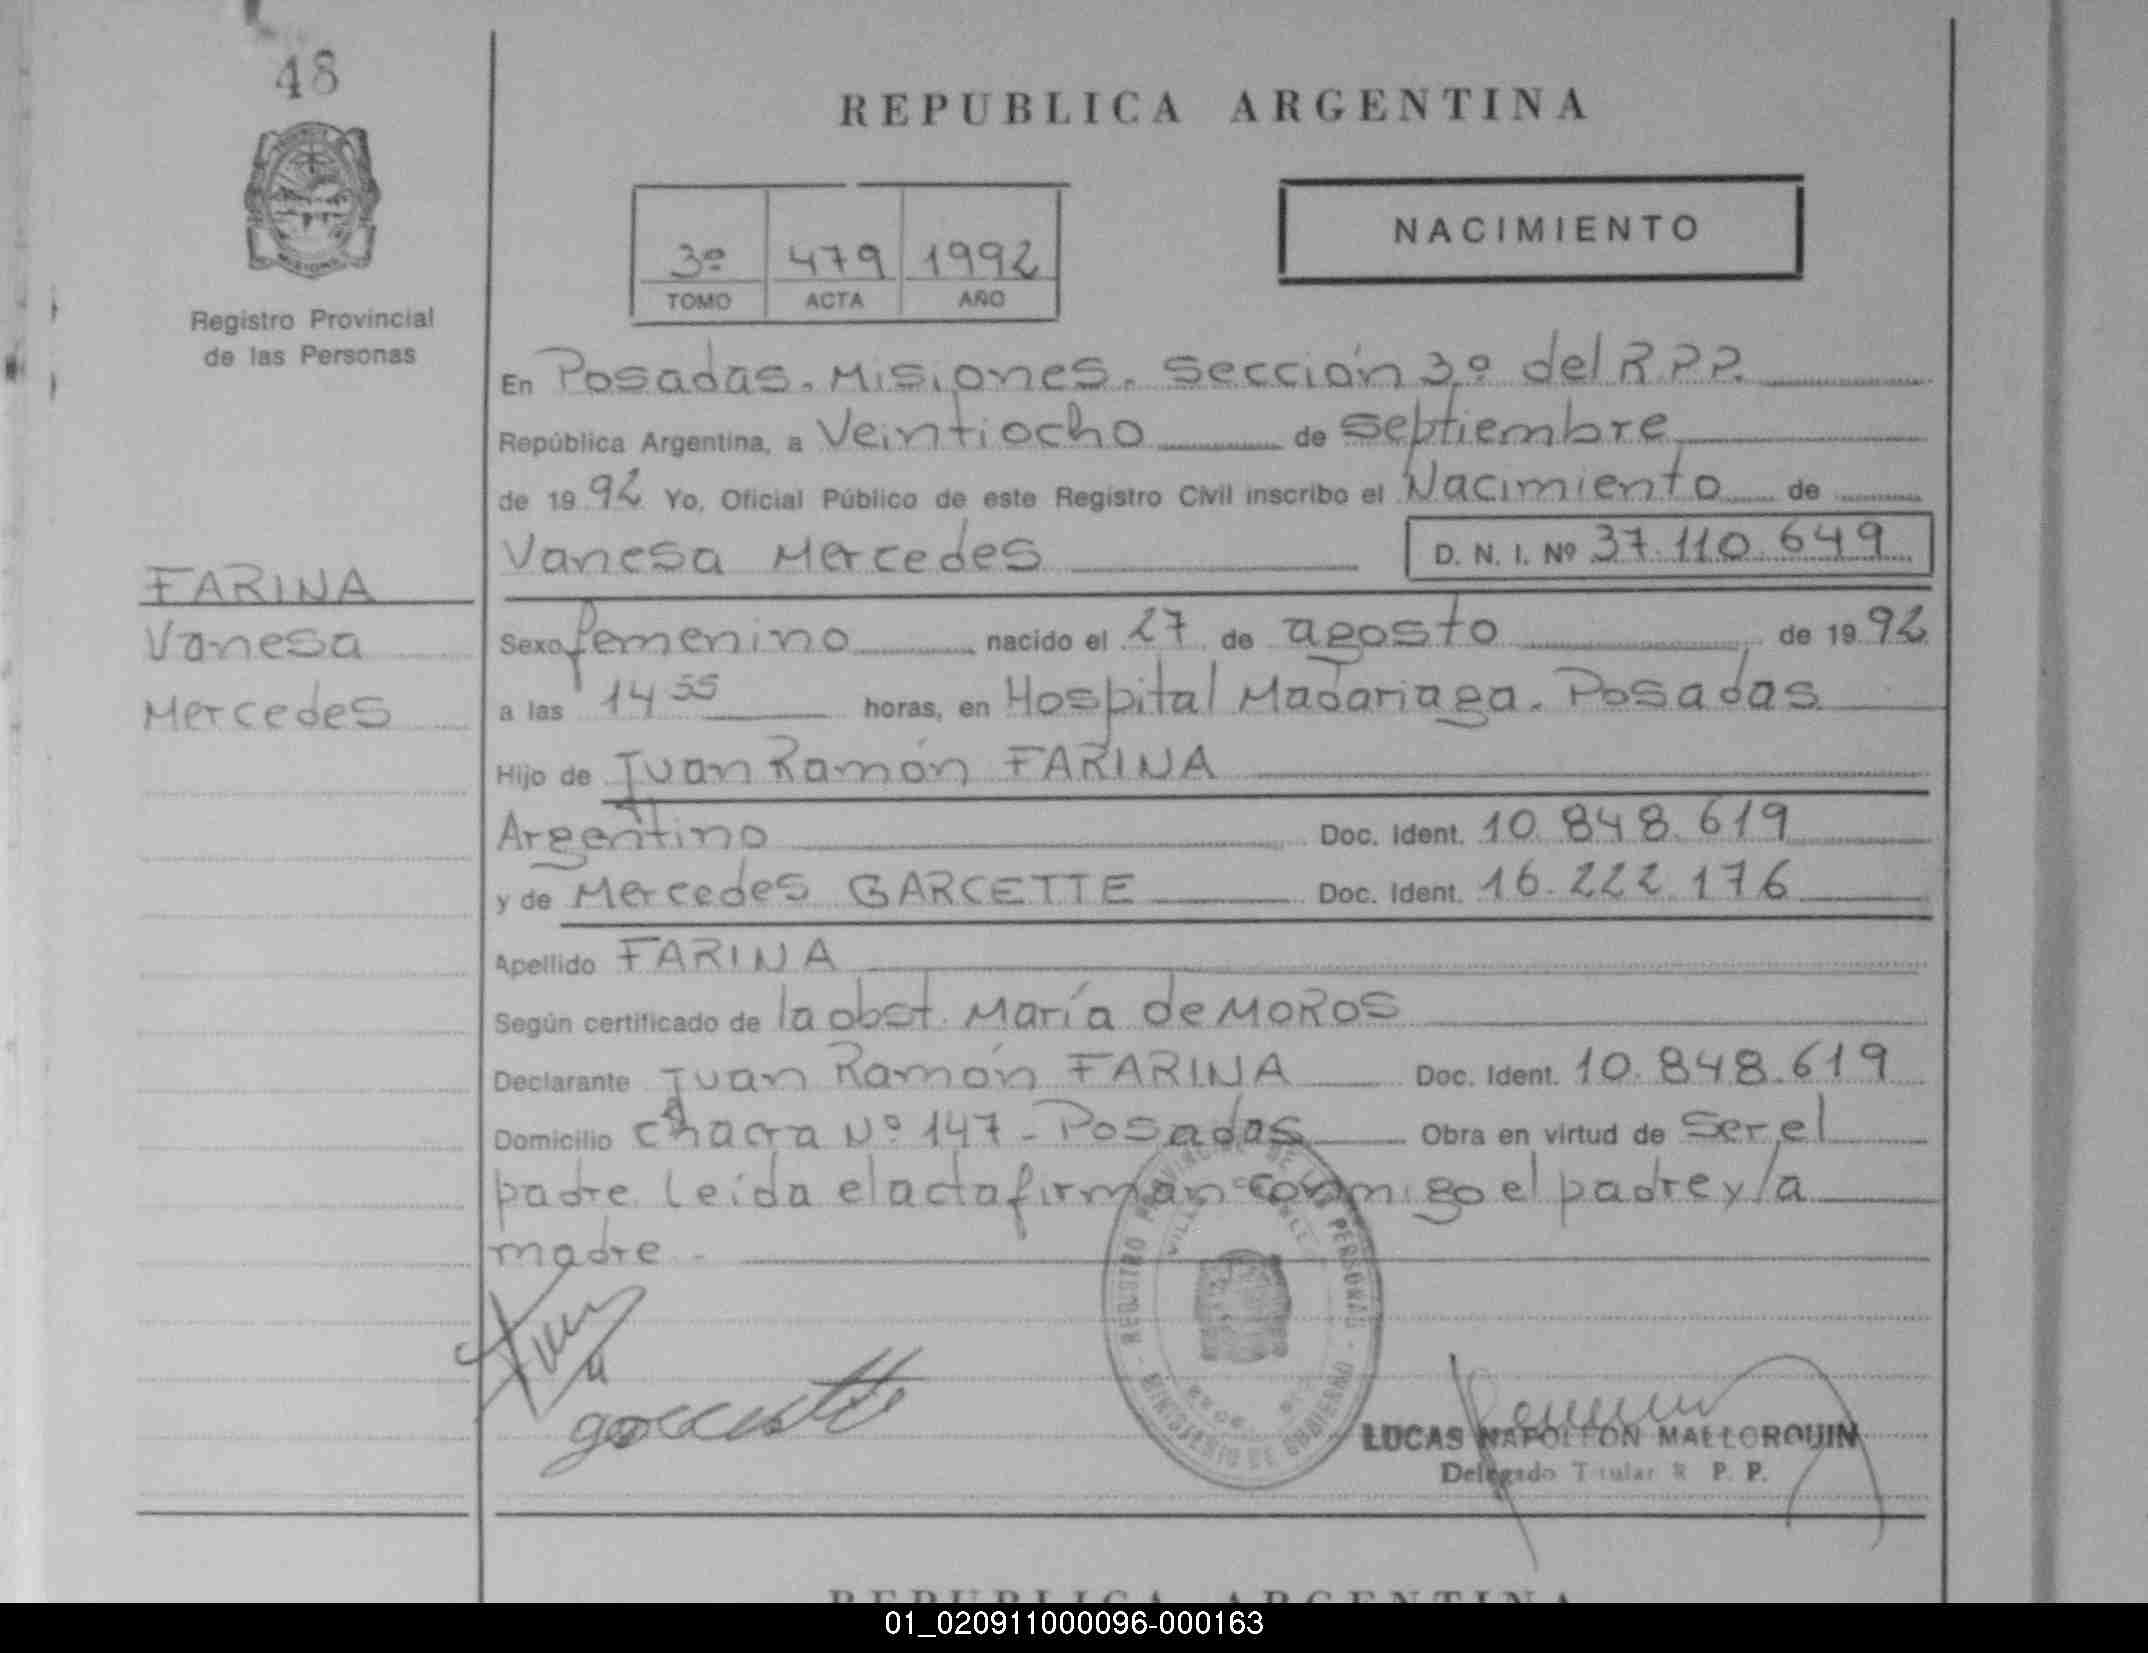 48
REPUBLICA ARGENTINA
NACIMIENTO
3º 479 1992
TOMO ACTA AÑO
Registro Provincial
de las Personas
En Posadas. Misiones. Sección 3º del R.P.P.
República Argentina, a Veintiocho de Septiembre
de 1992 Yo, Oficial Público de este Registro Civil inscribo el Nacimiento de
Vanesa Mercedes D. N. I. Nº 37.110.649
FARINA
Vanesa
Mercedes
Sexo femenino nacido el 27 de agosto de 1992
a las 14 55 horas, en Hospital Madariaga. Posadas
Hijo de Juan Ramón FARINA
Argentino Doc. Ident. 10.848.619
y de Mercedes GARCETTE Doc. Ident. 16.222.176
Apellido FARINA
Según certificado de la obst. María de MOROS
Declarante Juan Ramón FARINA Doc. Ident. 10.848.619
Domicilio chacra Nº 147 - Posadas Obra en virtud de Ser el
padre. Leída el acta firman conmigo el padre y la
madre.-
REGISTRO PROVINCIAL DE LAS PERSONAS
MINISTERIO DE GOBIERNO
garcette
LUCAS NAPOLEON MALLORQUIN
Delegado Titular R. P. P.
REPUBLICA ARGENTINA
01_020911000096-000163